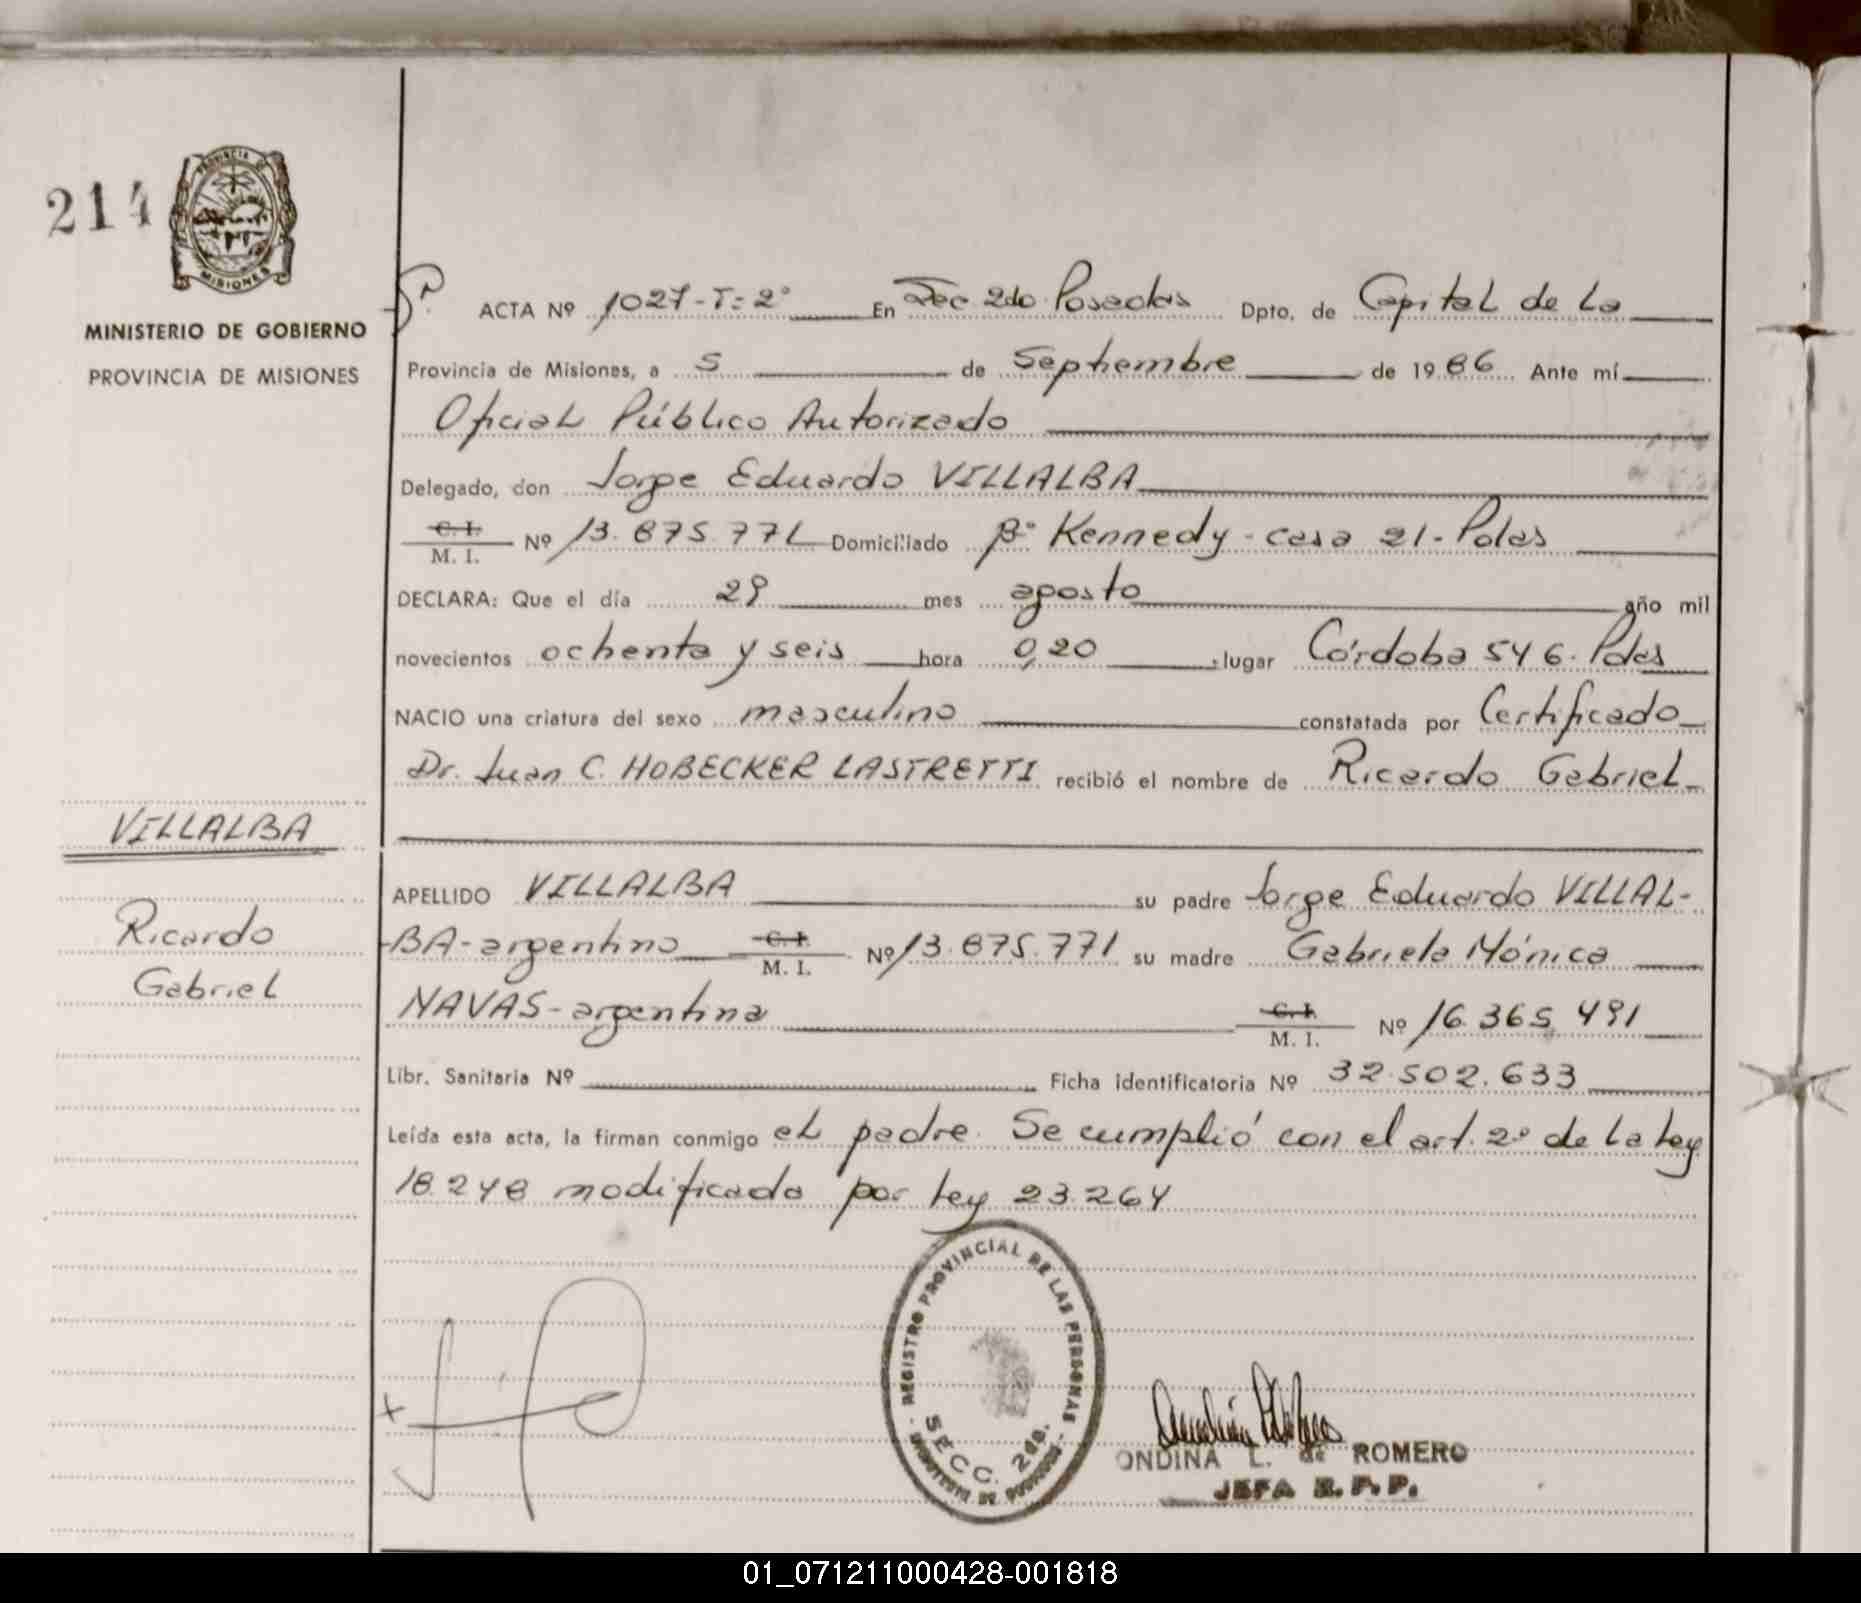 214
PROVINCIA DE
MISIONES
MINISTERIO DE GOBIERNO
PROVINCIA DE MISIONES
ACTA Nº 1027-T=2º En Sec 2do. Posadas Dpto. de Capital de La
Provincia de Misiones, a 5 de Septiembre de 1986 Ante mí
Oficial Público Autorizado
Delegado, don Jorge Eduardo VILLALBA
C. I.
M. I. Nº 13.875.771 Domiciliado Bº Kennedy - casa 21 - Pdas
DECLARA: Que el día 29 mes agosto año mil
novecientos ochenta y seis hora 0,20 lugar Córdoba 546. Pdas
NACIO una criatura del sexo masculino constatada por Certificado
Dr. Juan C. HOBECKER LASTRETTI recibió el nombre de Ricardo Gabriel
VILLALBA
Ricardo
Gabriel
APELLIDO VILLALBA su padre Jorge Eduardo VILLAL-
BA - argentino C. I. M. I. Nº 13.875.771 su madre Gabriela Mónica
NAVAS - argentina C. I. M. I. Nº 16.365.491
Libr. Sanitaria Nº Ficha identificatoria Nº 32.502.633
Leída esta acta, la firman conmigo el padre. Se cumplió con el art. 2º de la Ley
18.248 modificada por Ley 23.264
REGISTRO PROVINCIAL DE LAS PERSONAS
SECC. 2da.
MINISTERIO DE GOBIERNO
ONDINA L. de ROMERO
JEFA R. P. P.
01_071211000428-001818